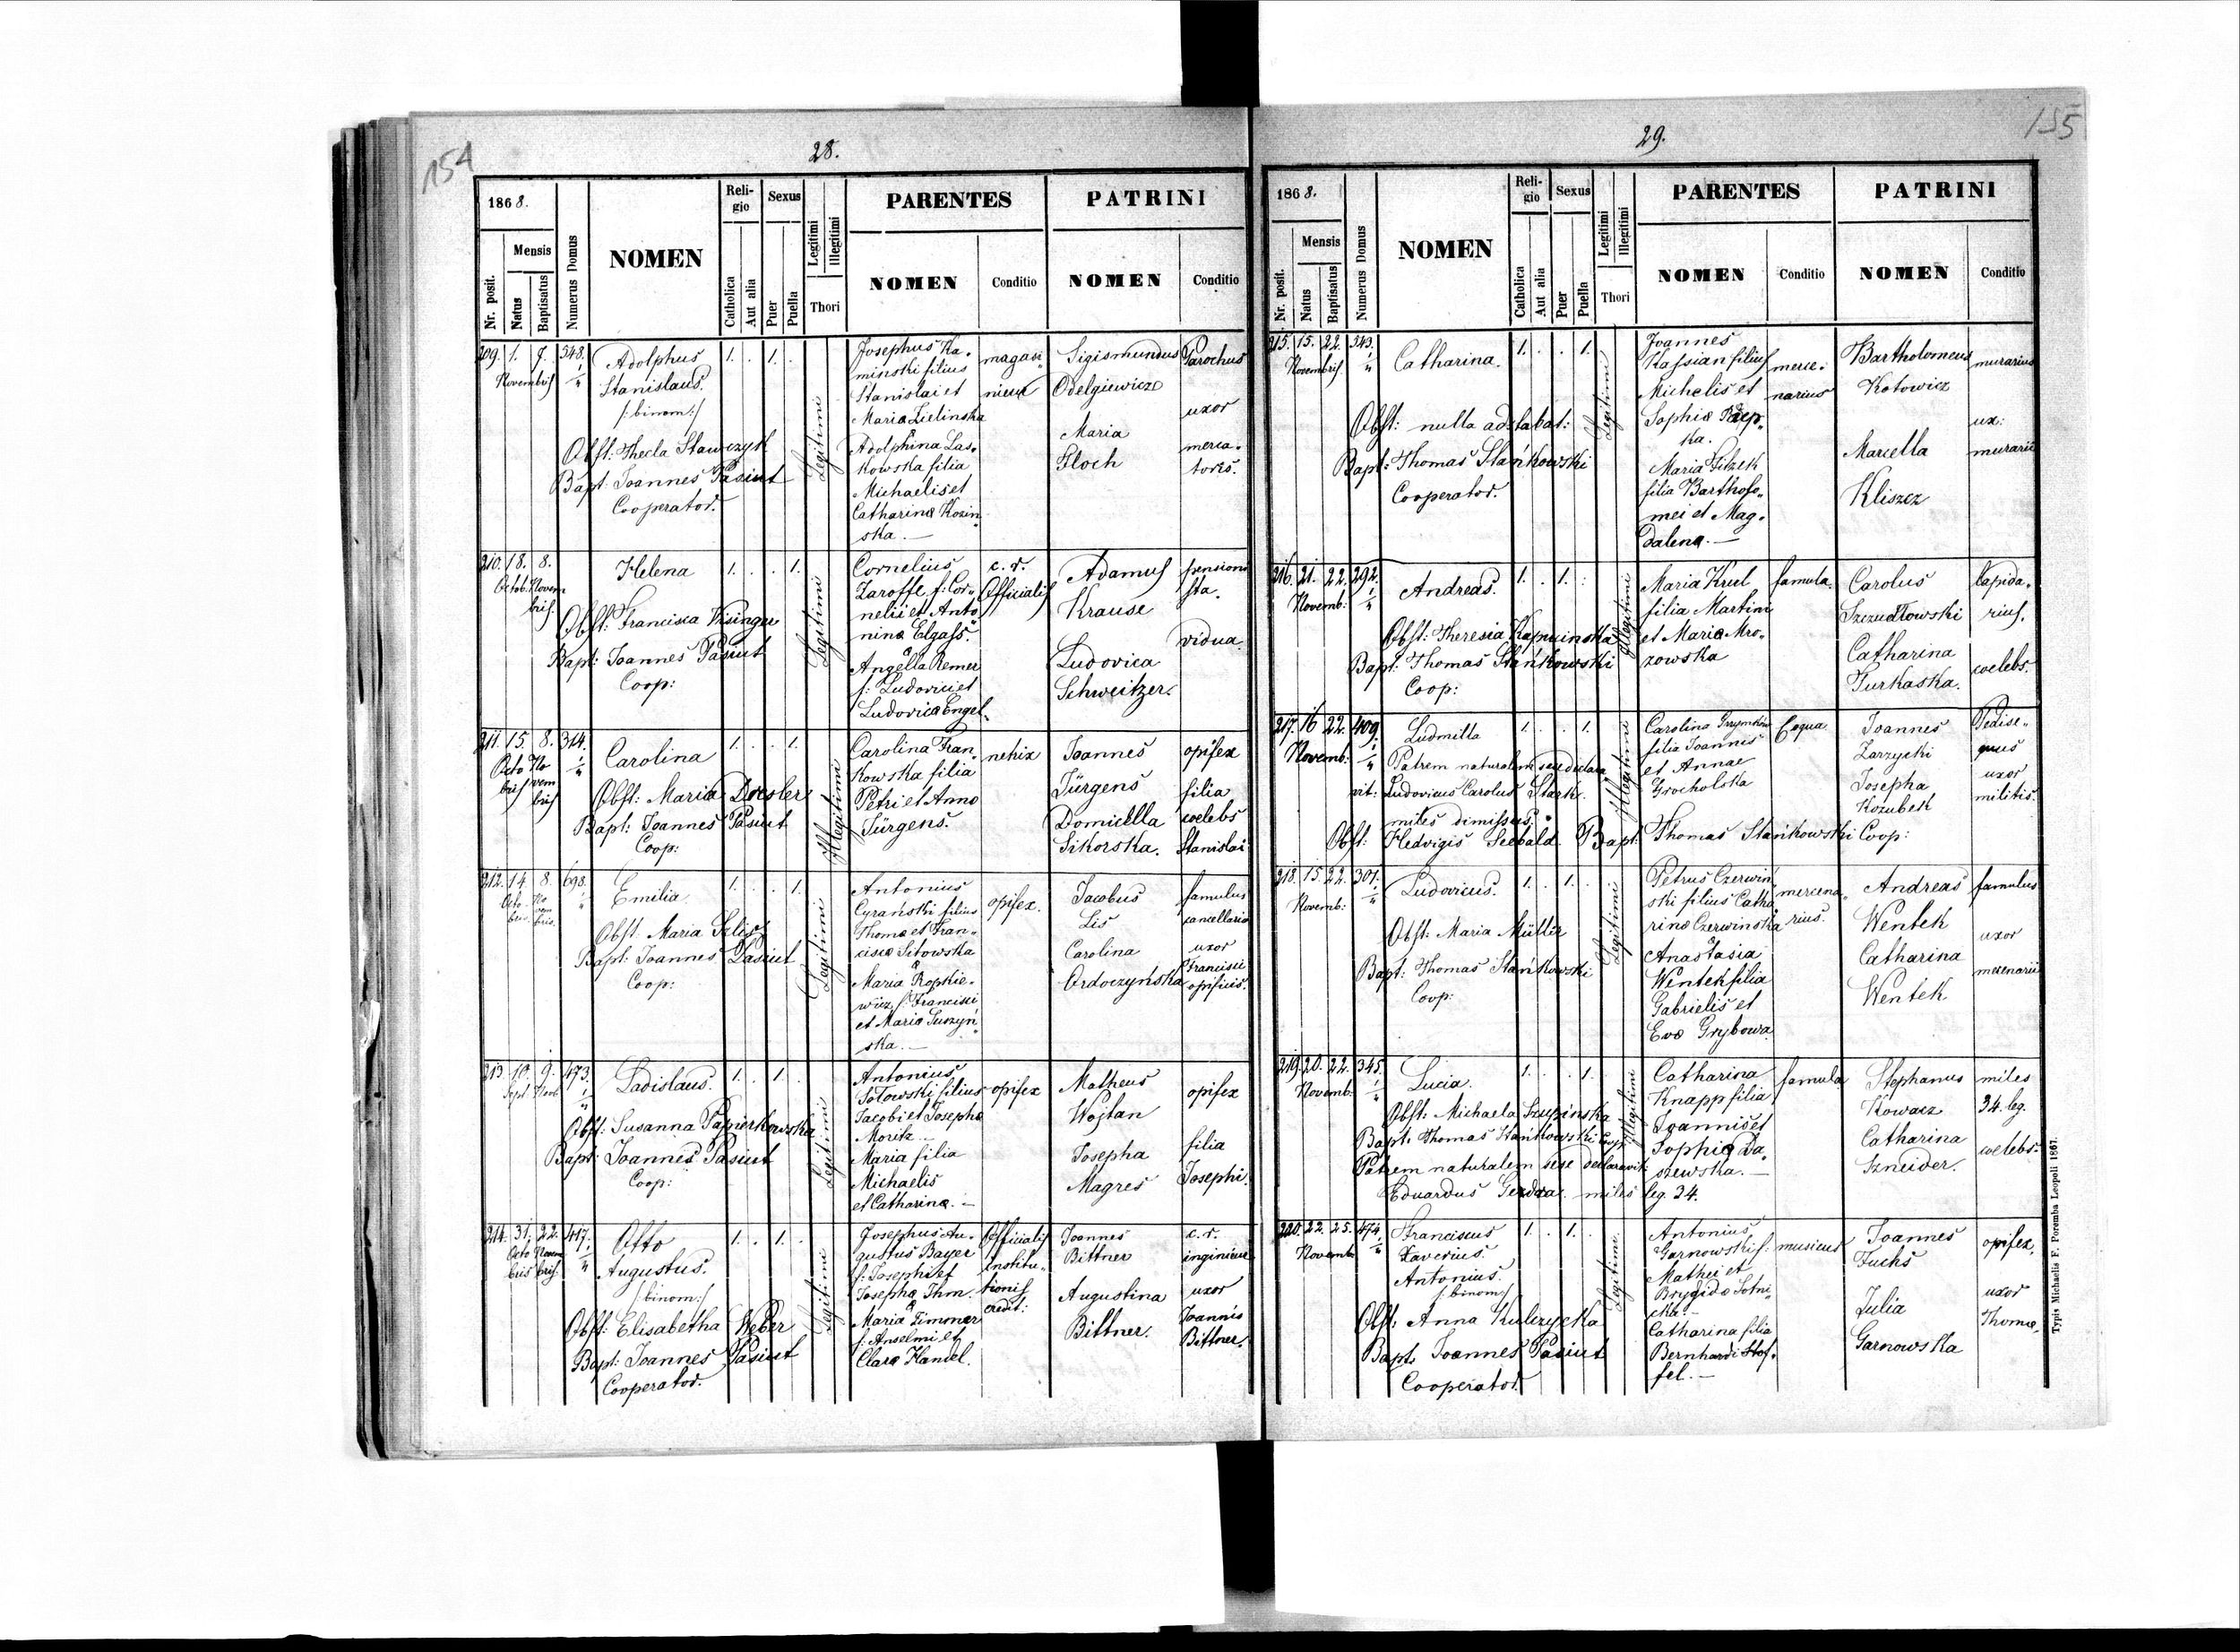 154
28.
1868.
Nr. posit.
Mensis
Natus
Baptisatus
Numerus Domus
NOMEN
Religio
Catholica
Aut alia
Sexus
Puer
Puella
Legitimi
Illegitimi
Thori
PARENTES
NOMEN
Conditio
PATRINI
NOMEN
Conditio
209. 1. 7. 548.
Novembris
Adolphus
Stanislaus.
/:binom:/
Obst: Thecla Stawczyk
Bapt: Joannes Pasiut
Cooperator.
1. . 1. .
Legitimi
Josephus Ka-
minski filius
Stanislai et
Maria Zielinska
Adolphina Las-
kowska filia
Michaelis et
Catharina Kozin-
ska.—
magasi-
nieur
Sigismundus
Odelgiewicz
Maria
Floch
Parochus
uxor
merca-
toris.
210. 18. 8.
Octob. Novem
bris
Helena
Obst: Francisca
Bapt: Joannes Pasiut
Coop:
1. . . 1.
Legitimi
Cornelius
Zaroffe f: Cor-
nelii et Anto
nina Elgass.
Angella Remer
f: Ludovici et
Ludovica Engel.
c. r.
Officialis
Adamus
Krause
Ludovica
Schweitzer.
pensioni
sta.
vidua.
211. 15. 8. 314.
Octo No
bris vem
bris
Carolina
Obst: Maria Doesler
Bapt: Joannes Pasiut
Coop:
1. . . 1.
Illegitimi
Carolina Fran-
kowska filia
Petri et Anna
Jürgens.
netrix
Joannes
Jürgens
Domicella
Sikorska.
opifex
filia
coelebs
Stanislai
212. 14. 8. 698.
Octo- No
bris. vem
bris.
Emilia.
Obst. Maria
Bapt: Joannes Pasiut
Coop:
1. . . 1.
Legitimi
Antonius
Cyrański filius
Thoma et Fran-
cisca Sitowska
Maria Ropkie-
wicz f: Francisci
et Maria Suszyń
ska.—
opifex.
Jacobus
Lis
Carolina
Ordoczyńska
famulus
cancellaria
uxor
Francisci
opificis.
213. 10. 9. 473.
Sept. Novb
Ladislaus.
Obst: Susanna Papierkowska
Bapt: Joannes Pasiut
Coop:
1. . 1. .
Legitimi
Antonius
Sotowski filius
Jacobi et Josepha
Moritz
Maria filia
Michaelis
et Catharina.—
opifex
Matheus
Wojtan
Josepha
Magres
opifex
filia
Josephi.
214. 31. 22. 417.
Octo Novem
bris bris.
Otto
Augustus.
/:binom:/
Obst: Elisabetha Weber
Bapt: Joannes Pasiut
Cooperator.
1. . 1. .
Legitimi
Josephus Au-
gustus Bayer
f: Josephi et
Josepha Thm.
Maria Zimmer
f: Anselmi et
Clara Handel.
Officialis
institu-
tionis
credit:
Joannes
Bittner
Augustina
Bittner.
c. r.
ingenieur
uxor
Joannis
Bittner.
155
29.
1868.
Nr. posit.
Mensis
Natus
Baptisatus
Numerus Domus
NOMEN
Religio
Catholica
Aut alia
Sexus
Puer
Puella
Legitimi
Illegitimi
Thori
PARENTES
NOMEN
Conditio
PATRINI
NOMEN
Conditio
215. 15. 22. 343.
Novembris
Catharina.
Obst: nulla adstabat:
Bapt: Thomas Stańkowski
Cooperator.
1. . . 1.
Legitimi
Joannes
Kassian filius
Michelis et
Sophia
ka.
Maria Fitzek
filia Bartholo-
mei et Mag-
dalena.—
merce-
narius
Bartholomeus
Kotowicz
Marcella
Kliszcz
murarius
ux:
murarii
216. 21. 22. 292.
Novemb:
Andreas.
Obst: Theresia Kapuinska
Bapt: Thomas Stańkowski
Coop:
1. . 1. .
Illegitimi
Maria Krul
filia Martini
et Maria Mro-
zowska
famula.
Carolus
Szczudłowski
Catharina
Turkaska.
lapida-
rius.
coelebs.
217. 16 22. 409.
Novemb:
Ludmilla
Patrem naturalem sese declara
vit: Ludovicus Carolus Stark.
miles dimissus.
Obst: Hedvigis Seebald. Bapt: Thomas Stańkowski Coop:
1. . . 1.
Illegitimi
Carolina
filia Joannis
et Annae
Grocholska
Coqua.
Joannes
Zarzycki
Josepha
Kozubek
Pedise-
quus
uxor
militis.
218. 15. 22. 301.
Novemb:
Ludovicus.
Obst: Maria Müller
Bapt: Thomas Stańkowski
Coop:
1. . 1. .
Legitimi
Petrus Czerwin
ski filius Catha
rina Czerwinska
Anastasia
Wentek filia
Gabrielis et
Eva Grybowa.
mercena
rius.
Andreas
Wentek
Catharina
Wentek
famulus
uxor
mercenarii
219. 20. 22. 345.
Novemb.
Lucia.
Obst: Michaela Szupinska
Bapt: Thomas Stańkowski Coop:
Patrem naturalem sese declaravit:
Eduardus miles leg. 34.
1. . . 1.
Illegitimi
Catharina
Knapp filia
Joannis et
Sophia Da-
szewska.—
famula
Stephanus
Kowacz
Catharina
Szneider.
miles
34. leg.
coelebs.
220. 22. 25. 474.
Novemb
Franciscus
Xaverius.
Antonius.
/:binom:/
Obst: Anna Kulczycka
Bapt: Joannes Pasiut
Cooperator.
1. . 1. .
Legitimi
Antonius
Garnowski f:
Mathei et
Brygida Sotni-
cka.—
Catharina filia
Bernhardi Stof-
fel.—
musicus
Joannes
Fuchs
Julia
Garnowska
opifex.
uxor
Thoma.
Typis Michaelis F. Poremba Leopoli 1867.